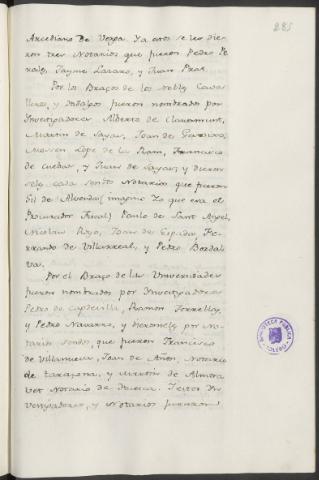 285
Arcediano de Vespa. Ya estos se les die-
ron tres Notarios que fueron Pedro Pe
rales, Jayme Lazaro, y Juan Prat.
Por los Brazos de los Nobles Cava-
lleros, y Hidalgos fueron nombrados por
Investigadores Alberto de Claramunt,
Martin de Sayas, Juan de
Mossen Lope de la Ram, Francisco
de Cuebas, y Juan de Sayas; y dieron
seles cada sendos Notarios que fueron
Gil de Almerda (imagino yo que era el
Procurador Fiscal) Paulo de Sant Angel,
Nicolau Royo, Juan de Espada, Fe-
rrando de Villarreal, y Pedro Bordal-
va.
Por el Brazo de las Universidades
fueron nombrados por Investigadores
Pedro de Capdevilla, Ramon Torrellas,
y Pedro Navarro, y dieronles por No-
tarios sendos, que fueron Francisco
de Villanueva, Juan de Añon, Notario
de Tarazona, y Martin de Almora
vet Notario de Huesca. Estos In-
vestigadores, y Notarios juraron
BIBLIOTECA PUBLICA
TOLEDO